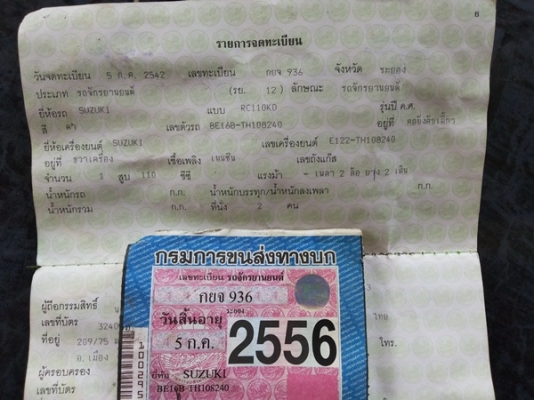 6
รายการจดทะเบียน
วันจดทะเบียน 5 ก.ค. 2542 เลขทะเบียน กยจ 936 จังหวัด ระยอง
ประเภท รถจักรยานยนต์ (รย. 12) ลักษณะ รถจักรยานยนต์
ยี่ห้อรถ SUZUKI แบบ RC110KD รุ่นปี ค.ศ.
สี ดำ เลขตัวรถ BE16B-TH108240 อยู่ที่
ยี่ห้อเครื่องยนต์ SUZUKI เลขเครื่องยนต์ E122-TH108240
อยู่ที่ ขวาเครื่อง เชื้อเพลิง เบนซิน เลขถังแก๊ส
จำนวน 1 สูบ 110 ซีซี แรงม้า - เพลา 2 ล้อ ยาง 2 เส้น
น้ำหนักรถ ก.ก. น้ำหนักบรรทุก/น้ำหนักลงเพลา ก.ก.
น้ำหนักรวม ก.ก. ที่นั่ง 2 คน
กรมการขนส่งทางบก
เลขทะเบียน รถจักรยานยนต์
กยจ 936
ระยอง
วันสิ้นอายุ
5 ก.ค. 2556
ยี่ห้อ SUZUKI
BE16B-TH108240
ผู้ถือกรรมสิทธิ์
เลขที่บัตร 3240
ไทย
ที่อยู่ 209/75 โทร.
อ.เมือง
ผู้ครอบครอง
เลขที่บัตร